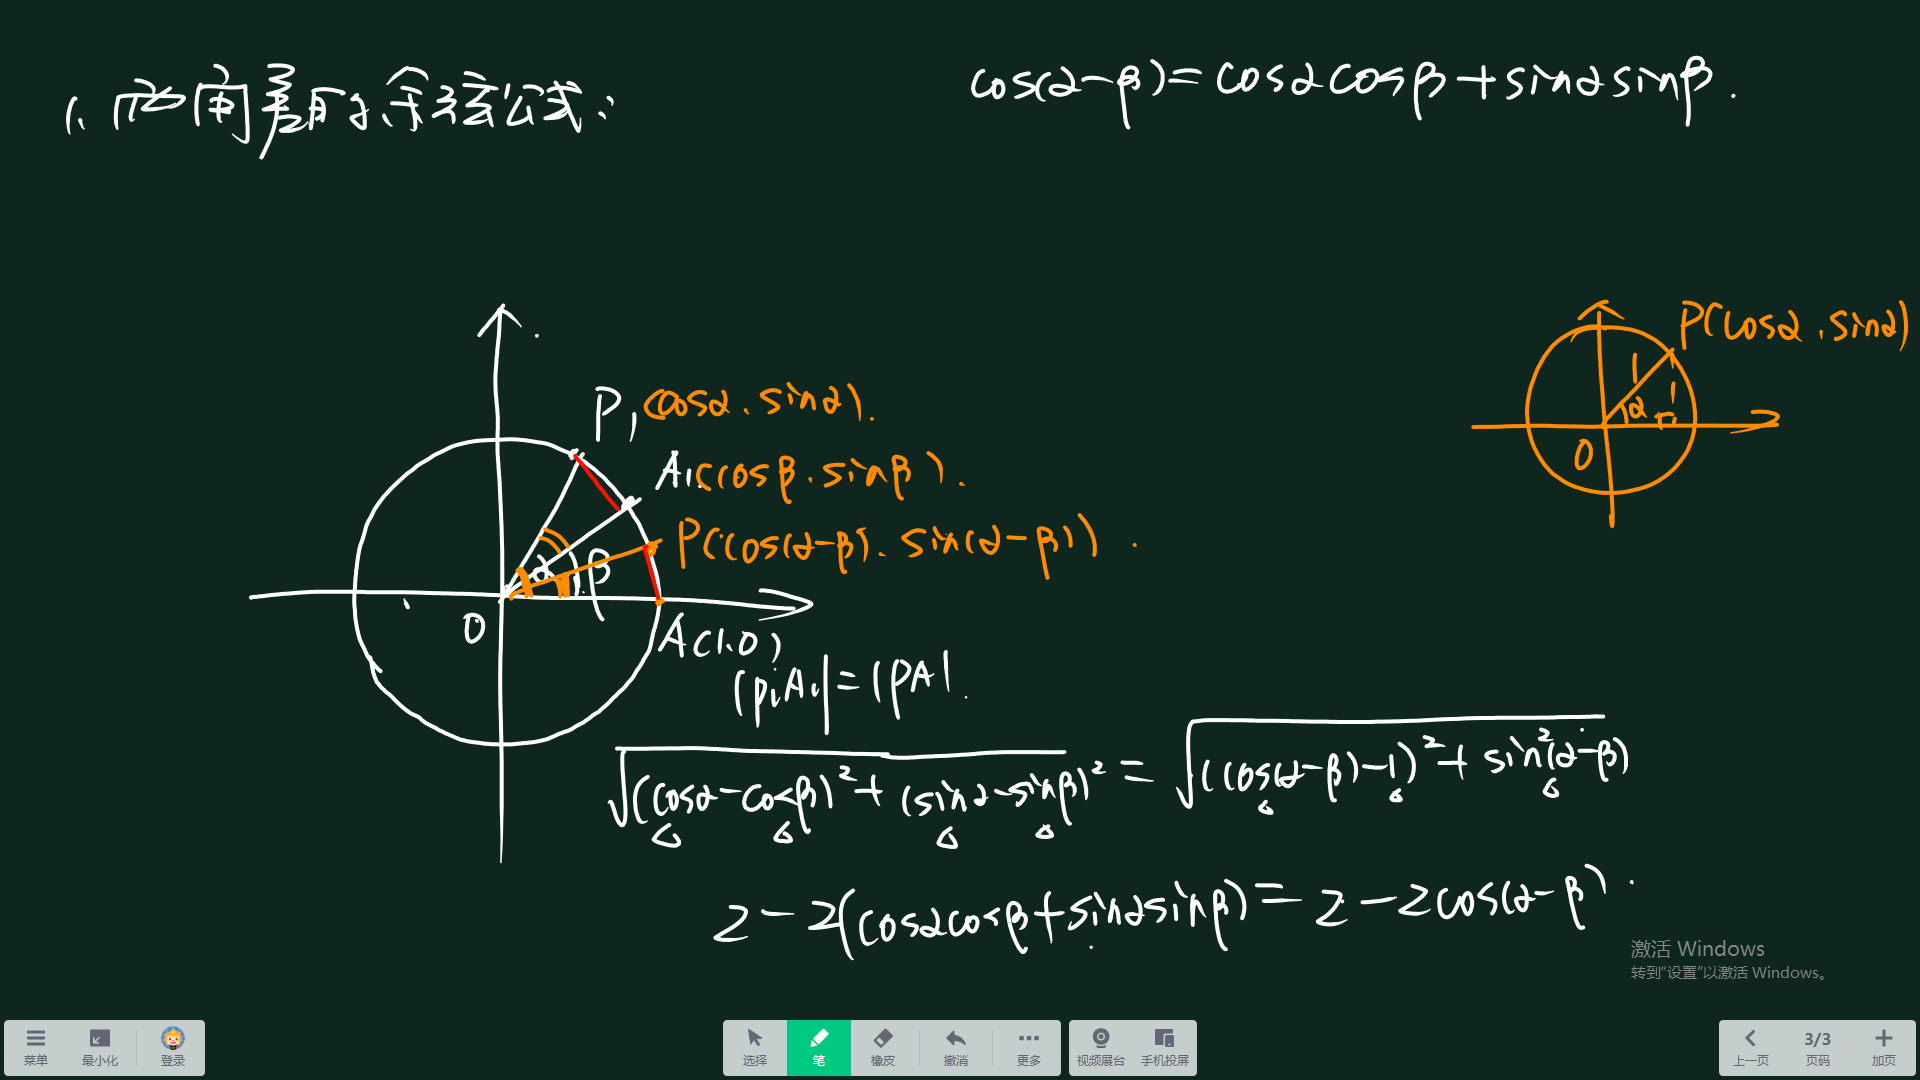 1. 两角差的余弦公式:
cos(α-β)=cosαcosβ+sinαsinβ.
P(cosα.sinα)
1
α
O
P₁(cosα.sinα).
A₁(cosβ.sinβ).
P(cos(α-β).sin(α-β)).
α
β
O
A(1.0)
|P₁A₁|=|PA|.
√((cosα-cosβ)²+(sinα-sinβ)²)=√((cos(α-β)-1)²+sin²(α-β))
2-2(cosαcosβ+sinαsinβ)=2-2cos(α-β).
激活 Windows
转到“设置”以激活 Windows。
菜单 最小化 登录 选择 笔 橡皮 撤消 更多 视频展台 手机投屏 上一页 3/3 页码 加页